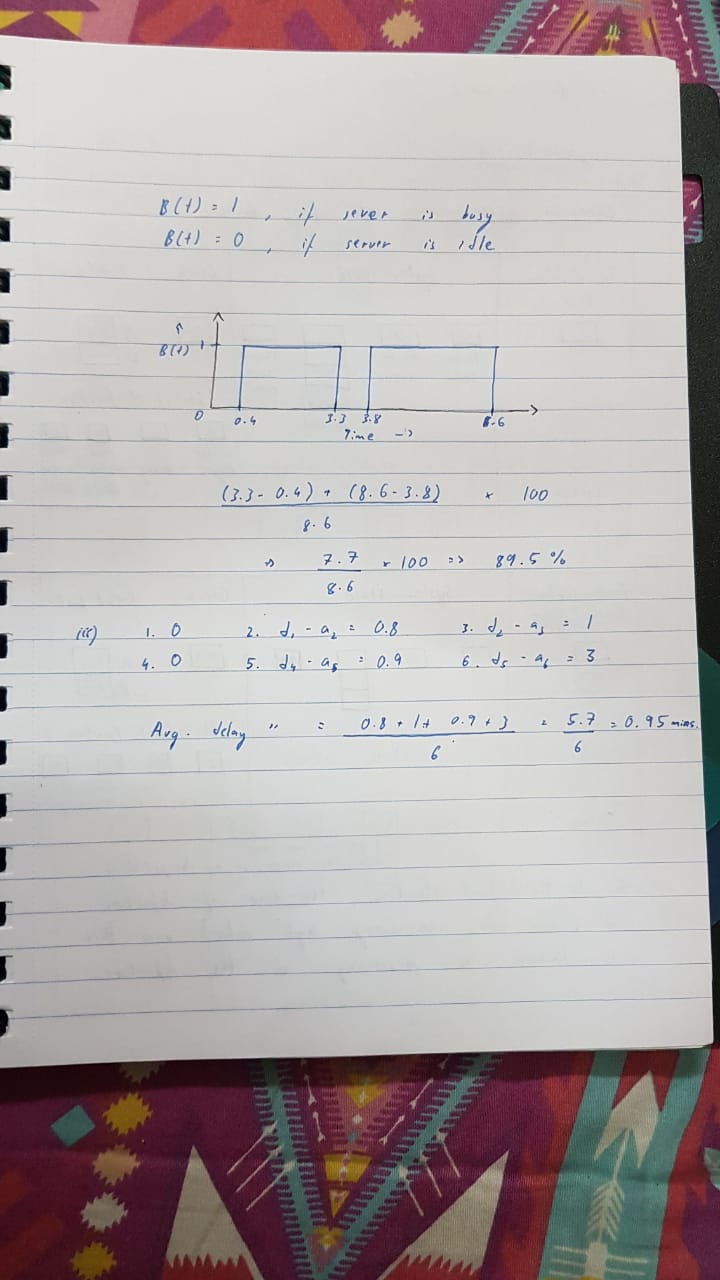 B(t) = 1 , if sever is busy
B(t) = 0 , if server is idle
↑
B(t) 1
0 0.4 3.3 3.8 8.6
Time →
(3.3 - 0.4) + (8.6 - 3.8) × 100
8.6
⇒ 7.7 × 100 => 89.5 %
8.6
iii) 1. 0 2. d₁ - a₂ = 0.8 3. d₂ - a₃ = 1
4. 0 5. d₄ - a₅ = 0.9 6. d₅ - a₆ = 3
Avg. delay " = 0.8 + 1 + 0.9 + 3 = 5.7 = 0.95 mins.
6 6